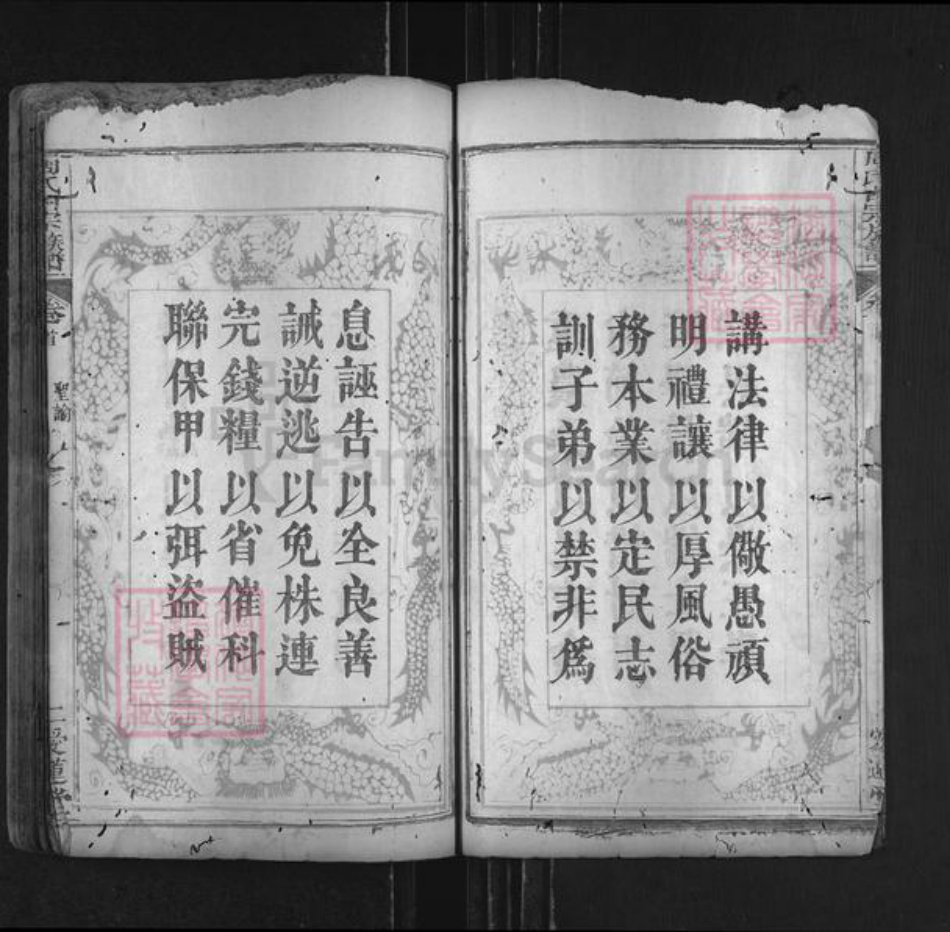 講法律以儆愚頑
明禮讓以厚風俗
務本業以定民志
訓子弟以禁非爲
息誣告以全良善
誡逆逃以免株連
完錢糧以省催科
聯保甲以弭盜賊
聖諭
愛蓮堂
FamilySearch